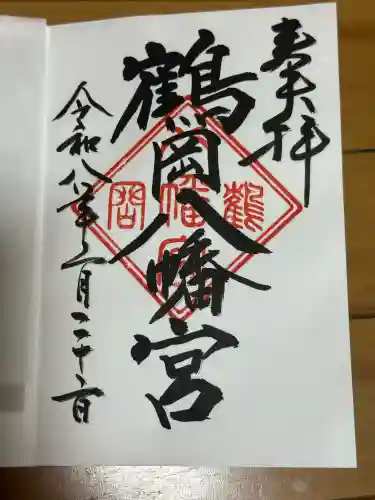 奉拝
鶴岡八幡宮
令和八年二月二十二日